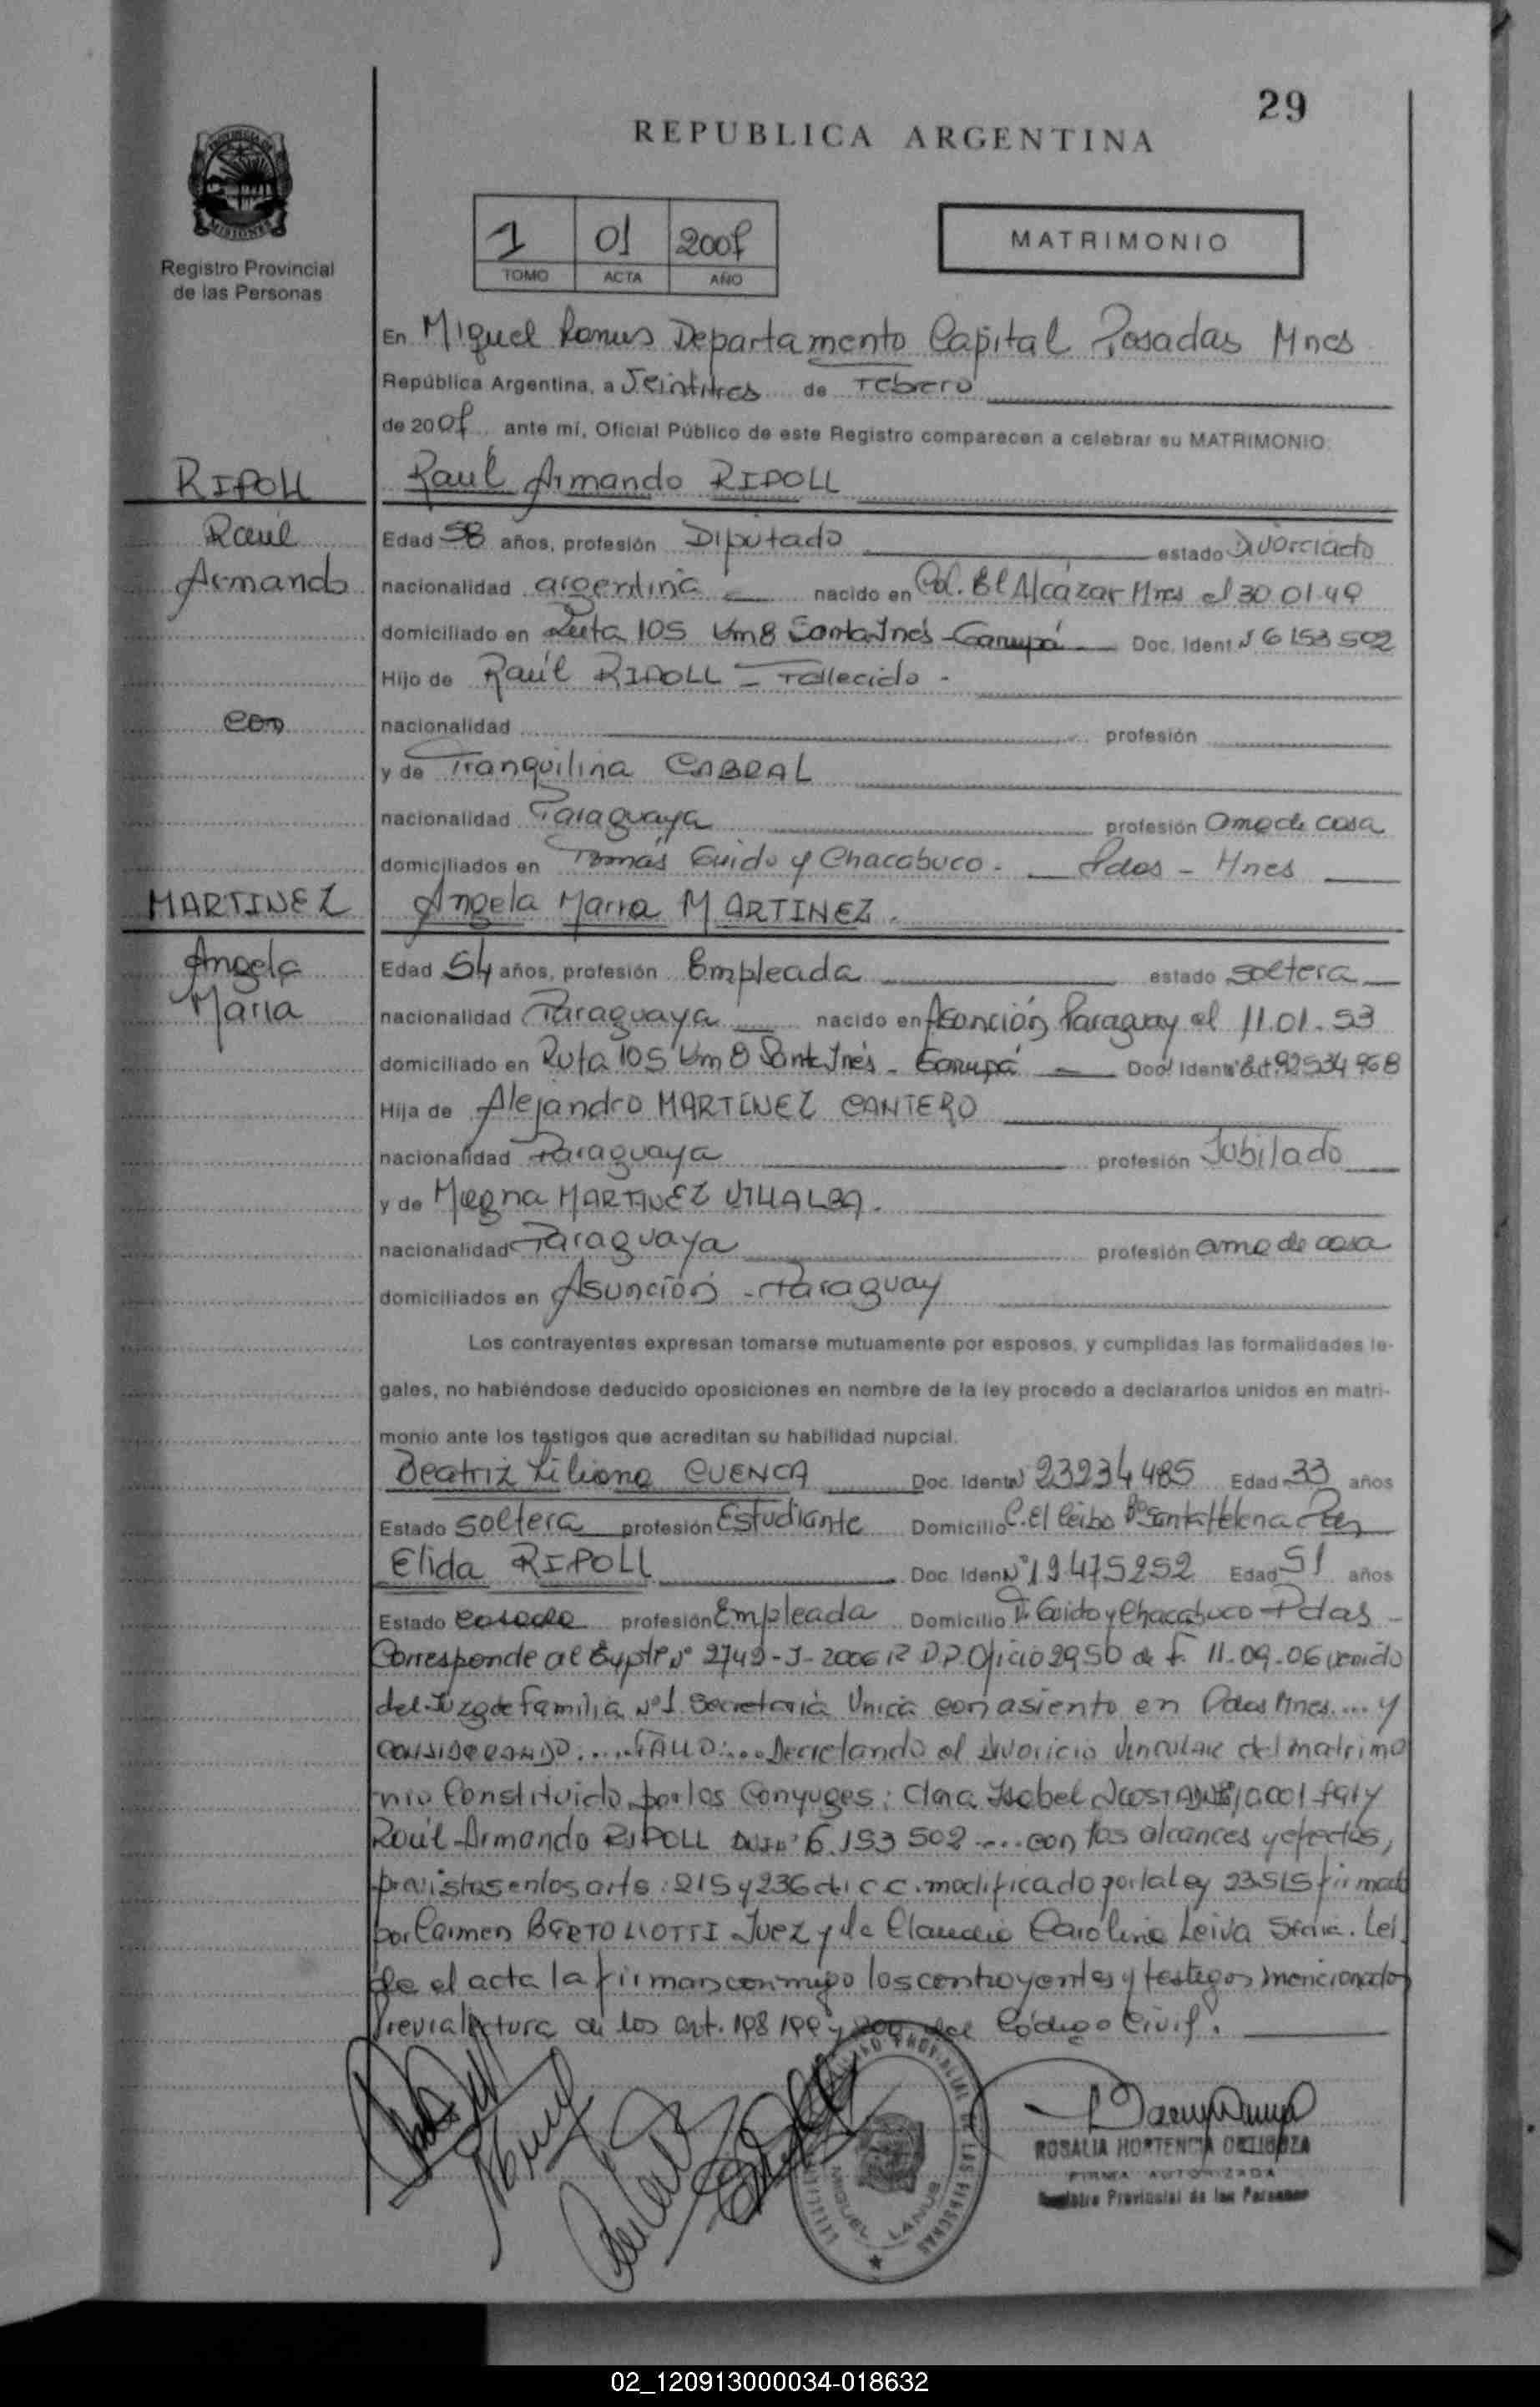 29
REPUBLICA ARGENTINA
PROVINCIA DE
MISIONES
Registro Provincial
de las Personas
1 01 2007
TOMO ACTA AÑO
MATRIMONIO
En Miguel Lanus Departamento Capital Posadas Mnes
República Argentina, a Veintitres de Febrero
de 2007 ante mí, Oficial Público de este Registro comparecen a celebrar su MATRIMONIO:
RIPOLL
Raúl Armando RIPOLL
Raúl
Edad 58 años, profesión Diputado estado Divorciado
Armando
nacionalidad argentina nacido en Col. El Alcázar Mnes el 30 01 49
domiciliado en Ruta 105 Km 8 Santa Inés - Garupá Doc. Ident Nº 6 153 502
Hijo de Raúl RIPOLL - Fallecido -
con
nacionalidad profesión
y de Tranquilina CABRAL
nacionalidad Paraguaya profesión ama de casa
domiciliados en Tomás Guido y Chacabuco - Pdas - Mnes
MARTINEZ
Angela Maria MARTINEZ.
Angela
Edad 54 años, profesión Empleada estado soltera
Maria
nacionalidad Paraguaya nacido en Asunción Paraguay el 11.01.53
domiciliado en Ruta 105 Km 8 Santa Inés - Garupá Doc. Ident Ext. 92534968
Hija de Alejandro MARTINEZ CANTERO
nacionalidad Paraguaya profesión Jubilado
y de MARTINEZ VILLALBA.
nacionalidad Paraguaya profesión ama de casa
domiciliados en Asunción - Paraguay
Los contrayentes expresan tomarse mutuamente por esposos, y cumplidas las formalidades le-
gales, no habiéndose deducido oposiciones en nombre de la ley procedo a declararlos unidos en matri-
monio ante los testigos que acreditan su habilidad nupcial.
Beatriz Liliana CUENCA Doc. Ident Nº 23234485 Edad 33 años
Estado soltera profesión Estudiante Domicilio C. El Ceibo Bº Santa Helena
Elida RIPOLL Doc. Iden Nº 19475252 Edad 51 años
Estado casada profesión Empleada Domicilio T. Guido y Chacabuco - Pdas -
Corresponde al Expte Nº 2749-J-2006 R D.P. Oficio 2950 de F. 11-09-06 venido
del Juzg de Familia Nº 1 Secretaría Unica con asiento en Pdas Mnes.... y
CONSIDERANDO:.....FALLO:... Decretando el divorcio vincular del matrimo
nio Constituido por los Conyuges: Clara Isabel ACOSTA y
Raúl Armando RIPOLL DNI Nº 6.153 502 .... con los alcances y efectos,
previstas en los arts: 215 y 236 del C C. modificado por la Ley 23.515 firmado
por Carmen BERTOLIOTTI Juez y de Claudia Carolina Leiva Srtria. Leí
da el acta la firman conmigo los contrayentes y testigos mencionados
Previa lectura de los art. 198 199 y 200 del Código Civil.
REGISTRO PROVINCIAL DE LAS PERSONAS
MIGUEL LANUS
ROSALIA HORTENCIA ORTIGOZA
FIRMA AUTORIZADA
Registro Provincial de las Personas
02_120913000034-018632